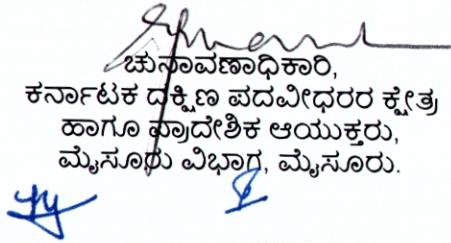 ಚುನಾವಣಾಧಿಕಾರಿ,
ಕರ್ನಾಟಕ ದಕ್ಷಿಣ ಪದವೀಧರರ ಕ್ಷೇತ್ರ
ಹಾಗೂ ಪ್ರಾದೇಶಿಕ ಆಯುಕ್ತರು,
ಮೈಸೂರು ವಿಭಾಗ, ಮೈಸೂರು.